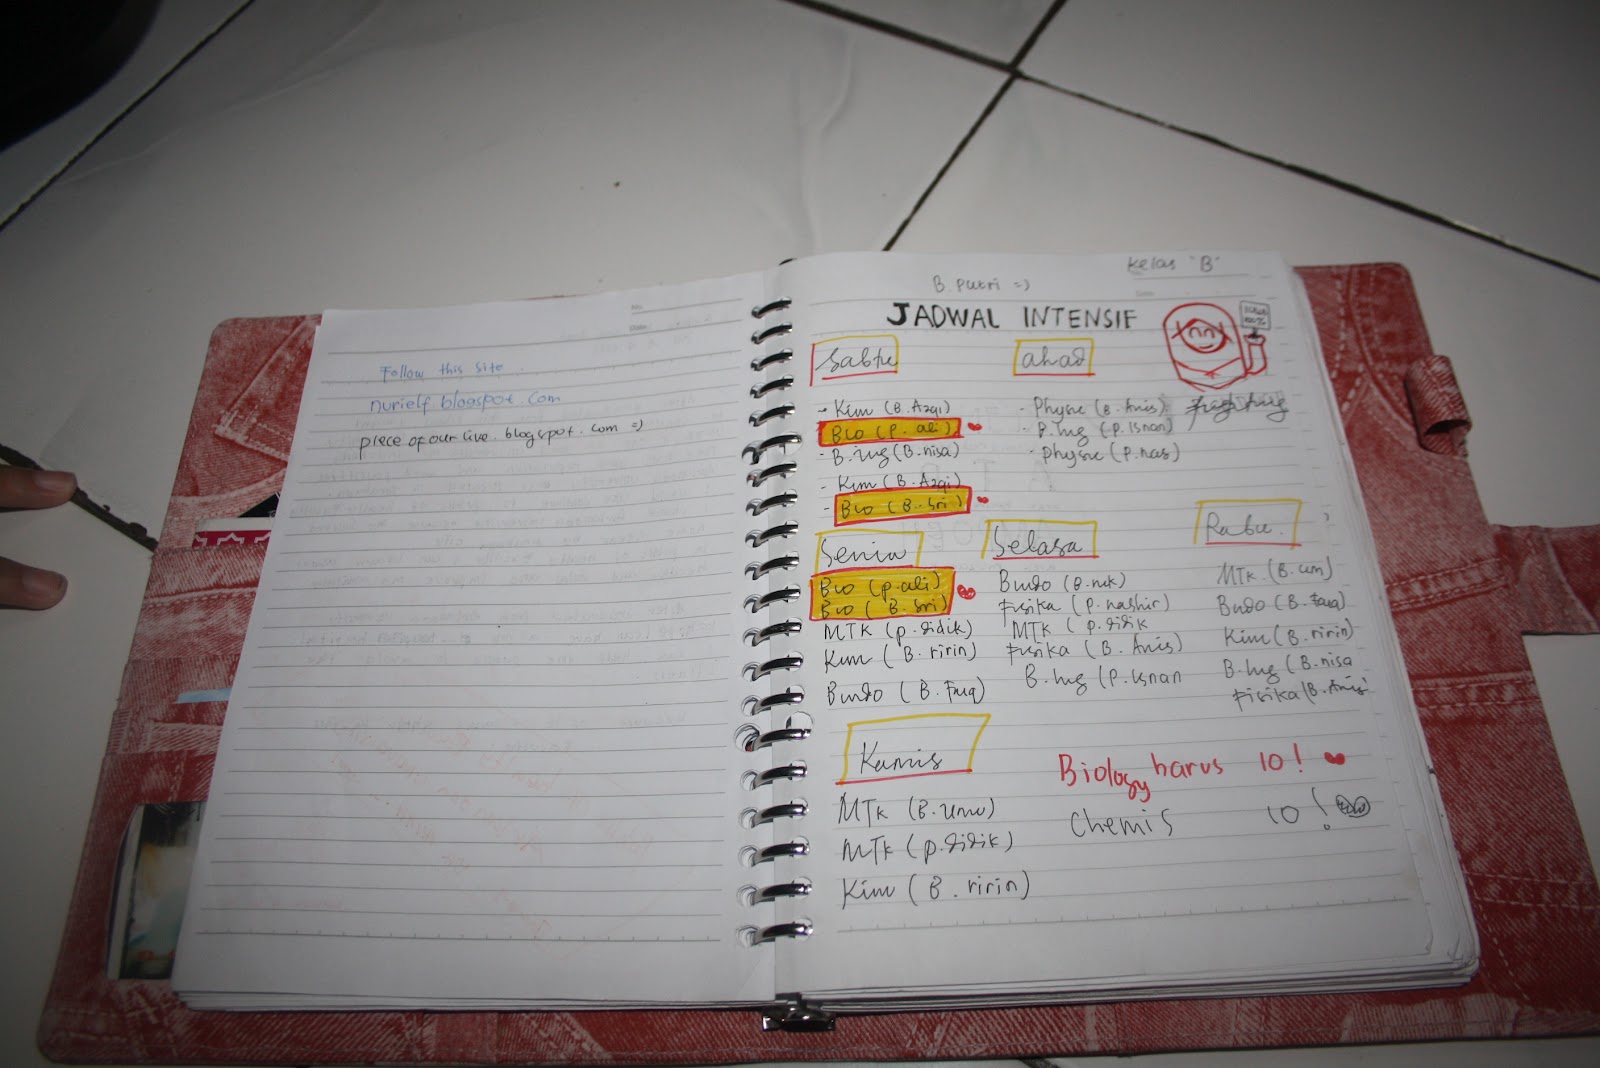 No:
Date:
Follow this site
nurielf.blogspot.com
piece of our live.blogspot.com =)
Kelas "B"
B. putri =)
JADWAL INTENSIF
Sabtu
- Kim (B. Azqi)
Bio (p. ali)
- B. Ing (B. nisa)
- Kim (B. Azqi)
- Bio (B. Sri)
ahad
- Physic (B. Anis)
- B. Ing (p. Isnan)
- Physic (p. nas)
Senin
Bio (p. ali)
Bio (B. Sri)
MTK (p. didik)
Kim (B. ririn)
Bindo (B. Fuq)
Selasa
Bindo (B. nik)
Fisika (p. nashir)
MTK (p. didik
Fisika (B. Anis)
B. Ing (P. Isnan
Rabu.
MTK (B. um)
Bindo (B. Fuq)
Kim (B. ririn)
B. Ing (B. nisa
Fisika (B. Anis)
Kamis
MTK (B. Umu)
MTK (p. didik)
Kim (B. ririn)
Biology harus 10!
Chemis 10!